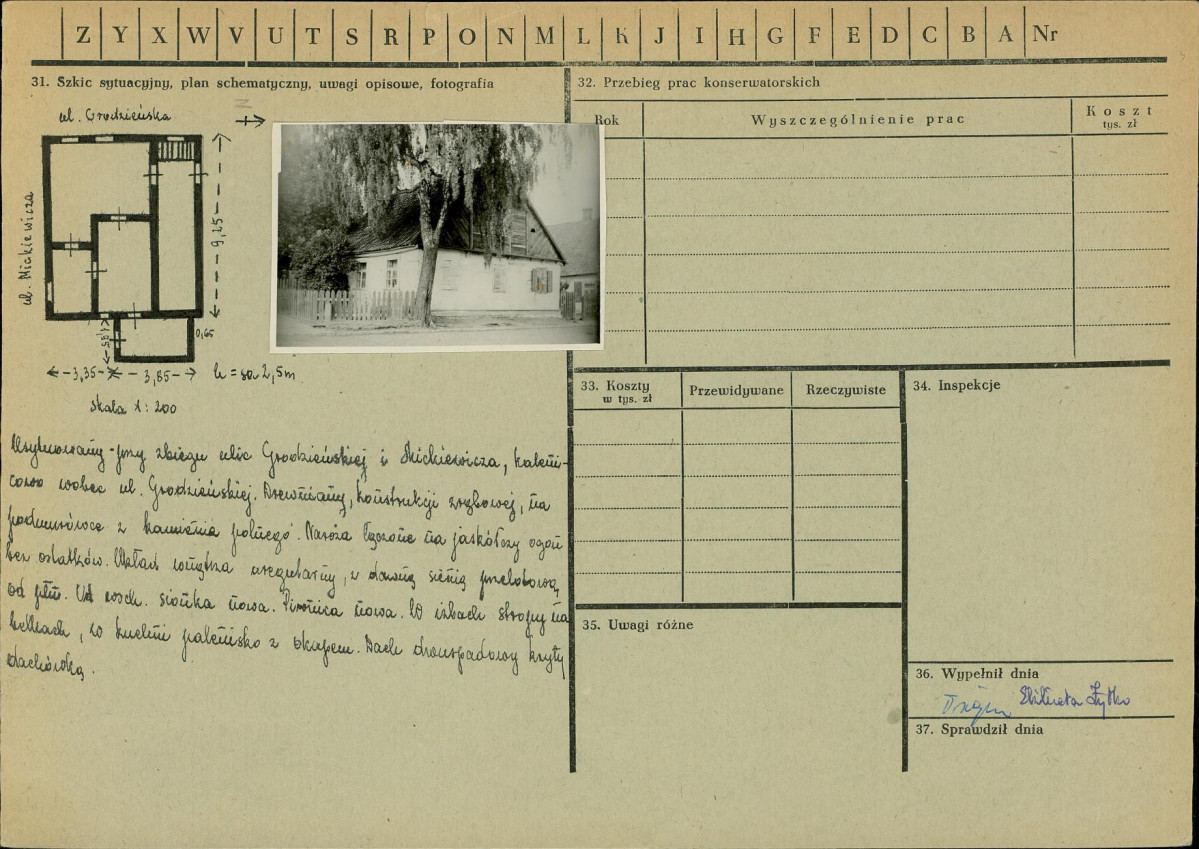 Z Y X W V U T S R P O N M L K J I H G F E D C B A Nr
31. Szkic sytuacyjny, plan schematyczny, uwagi opisowe, fotografia
ul. Grodzieńska
N
ul. Mickiewicza
9,25
1,85
0,65
3,35
3,85
h = ca 2,5m
Skala 1:200
Usytuowany przy zbiegu ulic Grodzieńskiej i Mickiewicza, kaleni-
cowo wobec ul. Grodzieńskiej. Drewniany, konstrukcji zrębowej, na
podmurówce z kamienia polnego. Naroża łączone na jaskółczy ogon
bez ostatków. Układ wnętrza nieregularny, z dawną sienią przelotową
od płn. Od wsch. sionka nowa. Piwnica nowa. W izbach stropy na
belkach, w kuchni palenisko z okapem. Dach dwuspadowy kryty
dachówką.
32. Przebieg prac konserwatorskich
Rok
Wyszczególnienie prac
Koszt
tys. zł
33. Koszty
w tys. zł
Przewidywane
Rzeczywiste
34. Inspekcje
35. Uwagi różne
36. Wypełnił dnia
Elżbieta Żytko
37. Sprawdził dnia